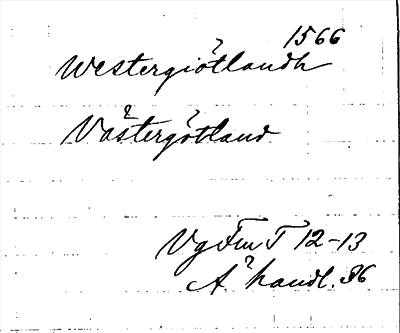 1566
Westergiötlandh
Västergötland
VgFmT 12-13
Å handl. 36